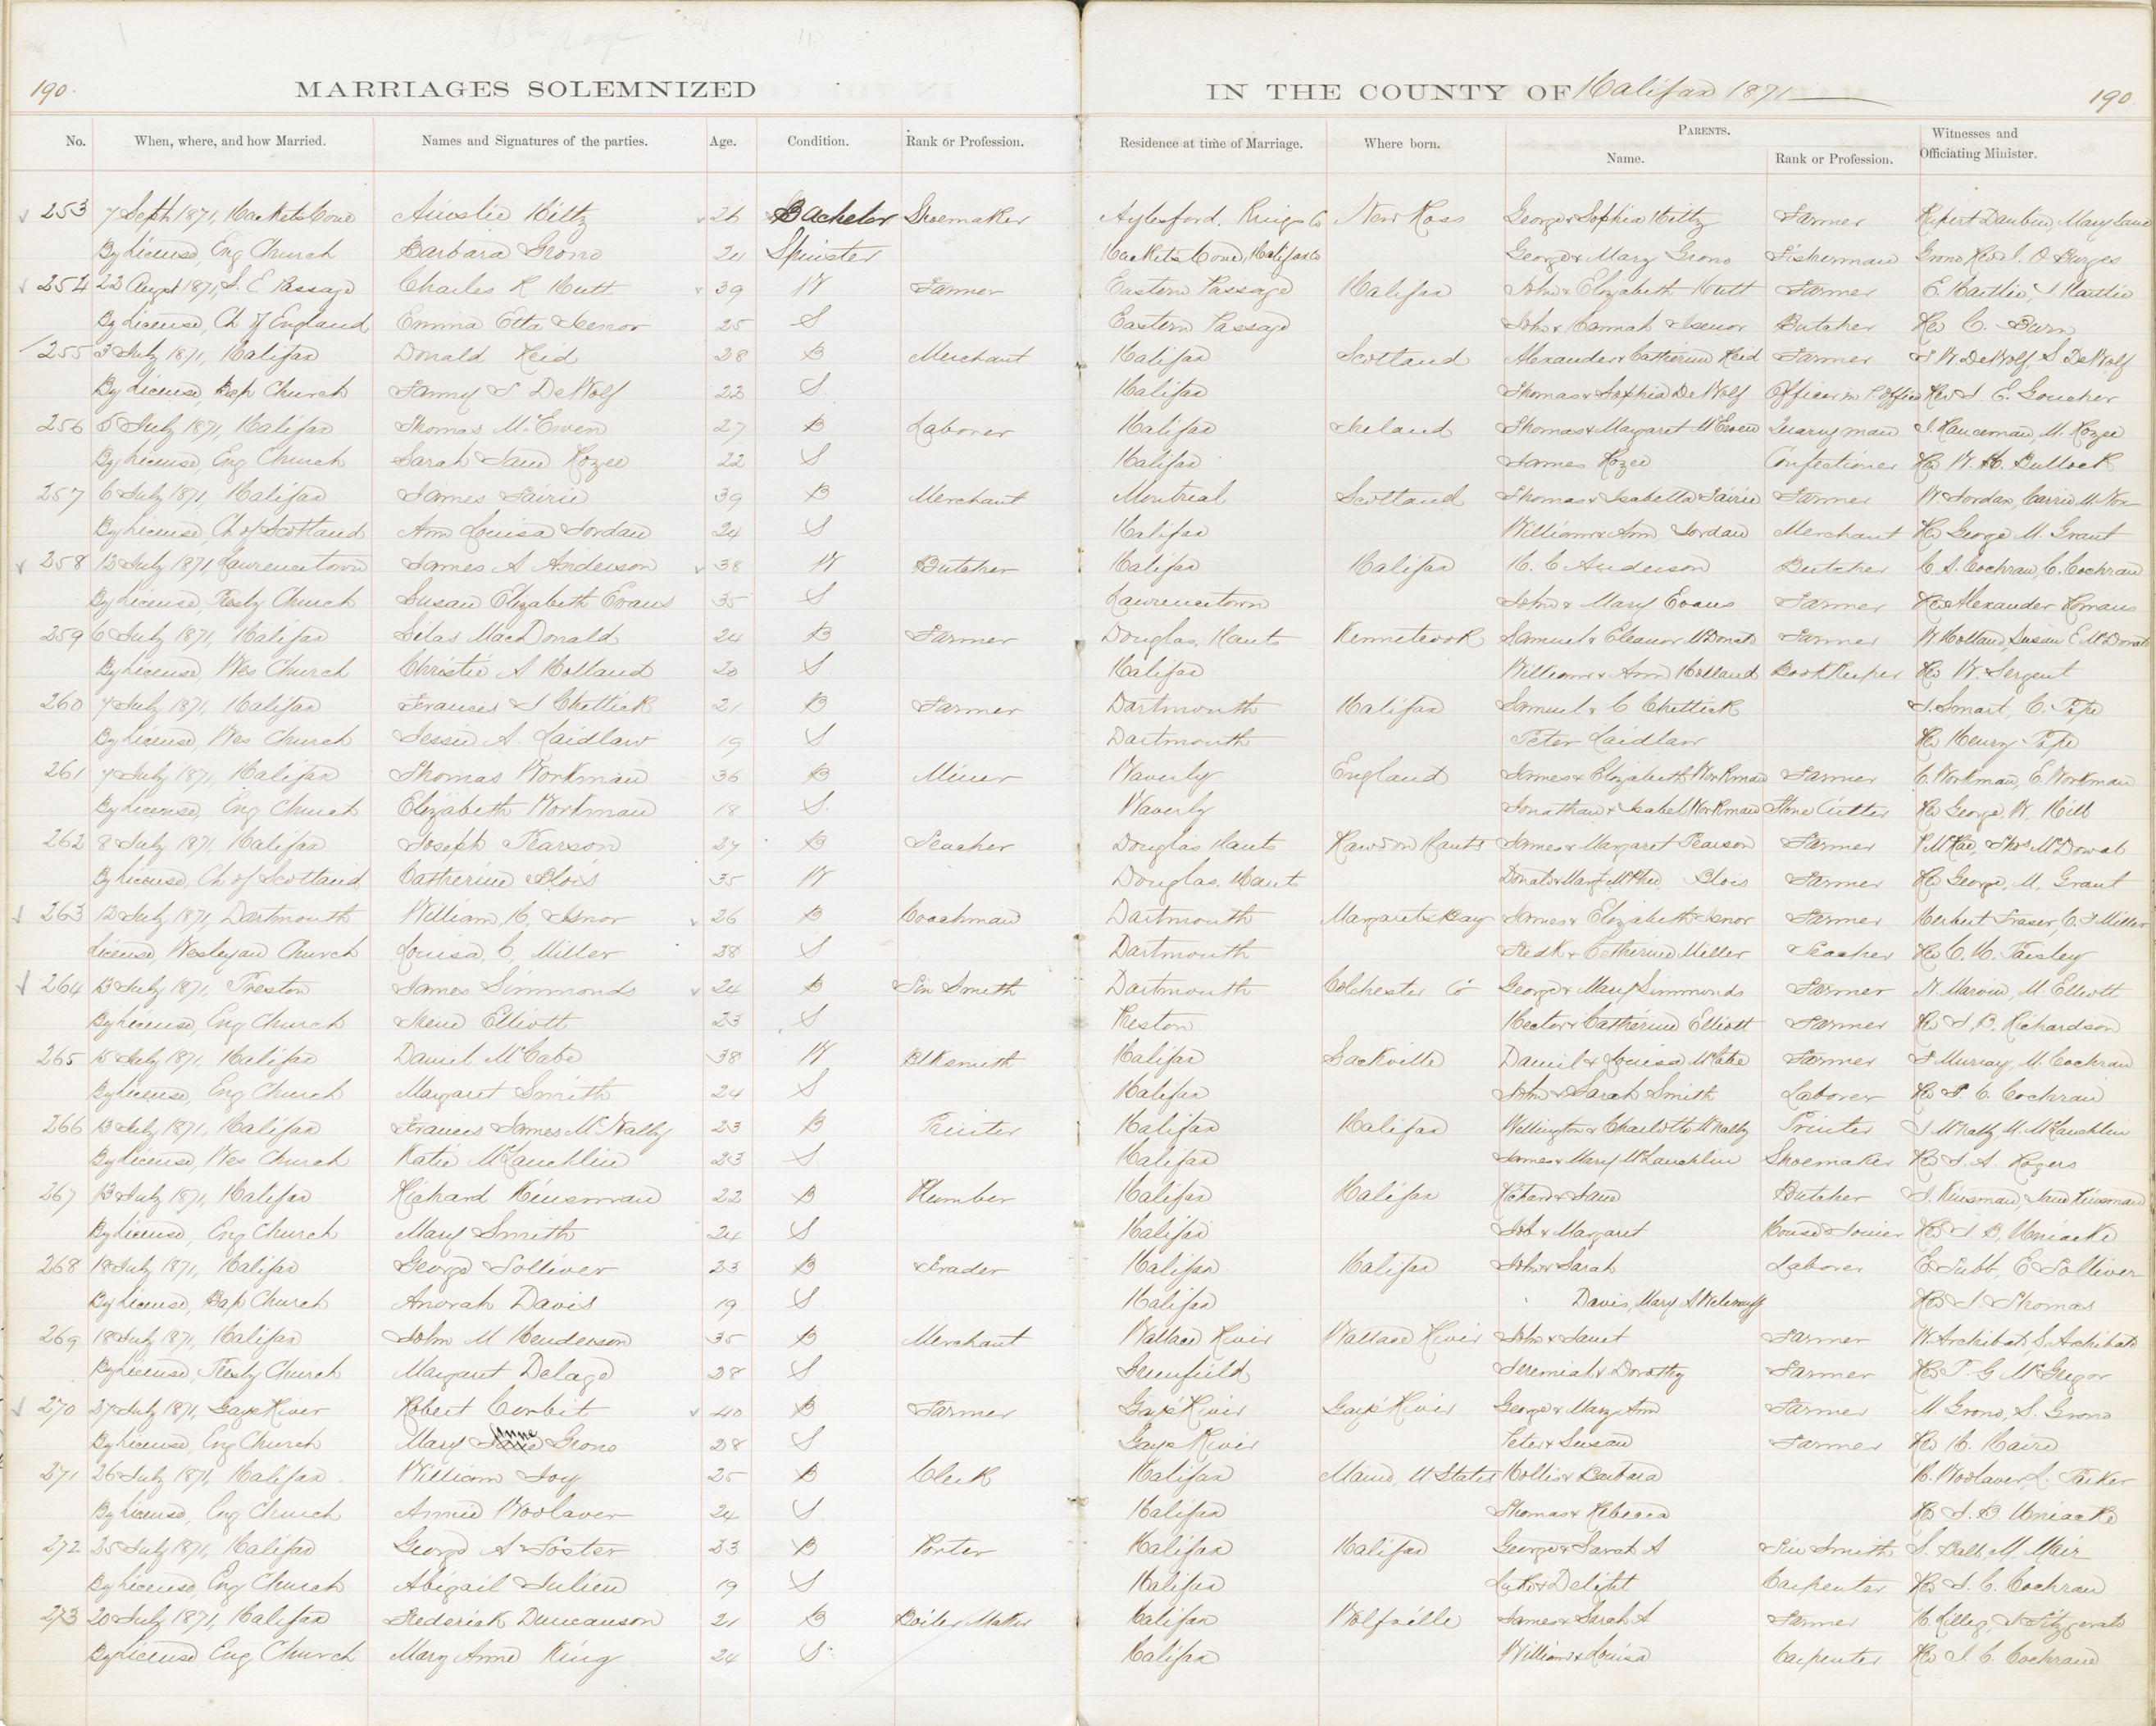 190. MARRIAGES SOLEMNIZED IN THE COUNTY OF Halifax 1871 190.
No. When, where, and how Married. Names and Signatures of the parties. Age. Condition. Rank or Profession. Residence at time of Marriage. Where born. PARENTS. Witnesses and
Name. Rank or Profession. Officiating Minister.
253 7 Septh 1871, Hackets Cove Ainslie Hiltz 26 Bachelor Shoemaker Aylesford, Kings Co New Ross George & Sophia Hiltz Farmer Rupert Mary Jane
By License, Eng Church Barbara Grono 21 Spinster Hackets Cove, Halifax Co George & Mary Grono Fisherman Grono Rev
254 22 Augst 1871, S. E. Passage Charles R Hutt 39 W Farmer Eastern Passage Halifax John & Elizabeth Hutt Farmer
By License, Ch of England Emma Etta Isenor 25 S Eastern Passage John & Hannah Isenor Butcher Rev
255 3 July 1871, Halifax Donald Reid 28 B Merchant Halifax Scotland Alexander & Catherine Reid Farmer J W. DeWolf, S DeWolf
By License, Bap Church Fanny S DeWolf 22 S Halifax Thomas & Sophia DeWolf Officer in P. Office Rev J. E. Goucher
256 5 July 1871, Halifax Thomas McEwen 27 B Laborer Halifax Ireland Thomas & Margaret McEwen Quaryman M. Rozee
By License, Eng Church Sarah Jane Rozee 22 S Halifax James Rozee Confectioner Rev W. H. Bullock
257 6 July 1871, Halifax James Fairie 39 B Merchant Montreal Scotland Thomas & Isabella Fairie Farmer W. Jordan, Carrie
By License, Ch of Scotland Ann Louisa Jordan 24 S Halifax William & Ann Jordan Merchant Rev George M. Grant
258 12 July 1871, Lawrencetown James A Anderson 38 W Butcher Halifax Halifax H. C Anderson Butcher C. S. Cochran, C. Cochran
By License, Presby Church Susan Elizabeth Evans 35 S Lawrencetown John & Mary Evans Farmer Rev Alexander Romans
259 6 July 1871, Halifax Silas MacDonald 24 B Farmer Douglas, Hants Kennetcook Samuel & Eleanor McDonald Farmer W Holland, Susan E McDonald
By License, Wes Church Christie A Holland 20 S Halifax William & Ann Holland BookKeeper Rev W. Sergent
260 7 July 1871, Halifax Francis J Chettick 21 B Farmer Dartmouth Halifax Samuel & C Chettick J. Smart, C. Pope
By License, Wes Church Jessie A. Laidlaw 19 S Dartmouth Peter Laidlaw Rev Henry Pope
261 7 July 1871, Halifax Thomas Workman 36 B Miner Waverly England James & Elizabeth Workman Farmer C. Workman, E. Workman
By License, Eng Church Elizabeth Workman 18 S. Waverly Jonathan & Isabel Workman Stone Cutter Rev George W. Hill
262 8 July 1871, Halifax Joseph Pearson 27 B Teacher Douglas Hants Rawdon Hants James & Margaret Pearson Farmer Thos McDowal
By License, Ch of Scotland Catherine Blois 35 W Douglas, Hants Blois Farmer Rev George M. Grant
263 12 July 1871, Dartmouth William H. Isnor 26 B Coachman Dartmouth Margarets Bay James & Elizabeth Isnor Farmer Herbert Fraser, C. J Miller
License, Wesleyan Church Louisa C. Miller 28 S Dartmouth Fredk & Catherine Miller Teacher Rev C. H. Paisley
264 13 July 1871, Preston James Simmonds 24 B Tin Smith Dartmouth Colchester Co George & Mary Simmonds Farmer N. Marvin, M. Elliott
By License, Eng Church Irene Elliott 23 S Preston Hector & Catherine Elliott Farmer Rev J. B. Richardson
265 15 July 1871, Halifax Daniel McCabe 38 W Blksmith Halifax Sackville Daniel & Louisa McCabe Farmer J Murray, M. Cochran
By License, Eng Church Margaret Smith 24 S Halifax John & Sarah Smith Laborer Rev J. C. Cochran
266 13 July 1871, Halifax Francis James McNally 23 B Printer Halifax Halifax Wellington & Charlotte McNally Printer J. McNally, M. McLauchlin
By License, Wes Church Katie McLauchlin 23 S Halifax James & Mary McLauchlin Shoemaker Rev J. A. Rogers
267 13 July 1871, Halifax Richard Kinsman 22 B Plumber Halifax Halifax Richard & Jane Butcher J. Kinsman, Jane Kinsman
By License, Eng Church Mary Smith 24 S Halifax Job & Margaret House Joiner Rev J. B. Uniacke
268 18 July 1871, Halifax George Solliver 23 B Trader Halifax Halifax John & Sarah Laborer E. Tubb, E Solliver
By License, Bap Church Anorah Davis 19 S Halifax Davis, Mary A Rev J. Thomas
269 18 July 1871, Halifax John M Henderson 35 B Merchant Wallace River Wallace River John & Janet Farmer W. Archibald, S. Archibald
By License, Presby Church Margaret Delage 28 S Greenfield Jeremiah & Dorothy Farmer Rev P. G McGregor
270 27 July 1871, Gays River Robert Corbit 40 B Farmer Gays River Gays River George & Mary Ann Farmer M. Grono, S. Grono
By License, Eng Church Mary Anne Grono 28 S Gays River Peter & Susan Farmer Rev H.
271 26 July 1871, Halifax William Joy 25 B Clerk Halifax Maine, U States Hollis & Barbara H. Woolaver, L. Parker
By License, Eng Church Annie Woolaver 24 S Halifax Thomas & Rebecca Rev J. B Uniacke
272 25 July 1871, Halifax George A Foster 23 B Porter Halifax Halifax George & Sarah A Tin Smith S. Ball, M. Mair
By License, Eng Church Abigail Julien 19 S Halifax Luke & Delight Carpenter Rev J. C. Cochran
273 20 July 1871, Halifax Frederick Duncanson 21 B Boiler Maker Halifax Wolfville James & Sarah A Farmer J Fitzgerald
By License Eng Church Mary Anne King 24 S. Halifax William & Louisa Carpenter Rev J. C. Cochrane